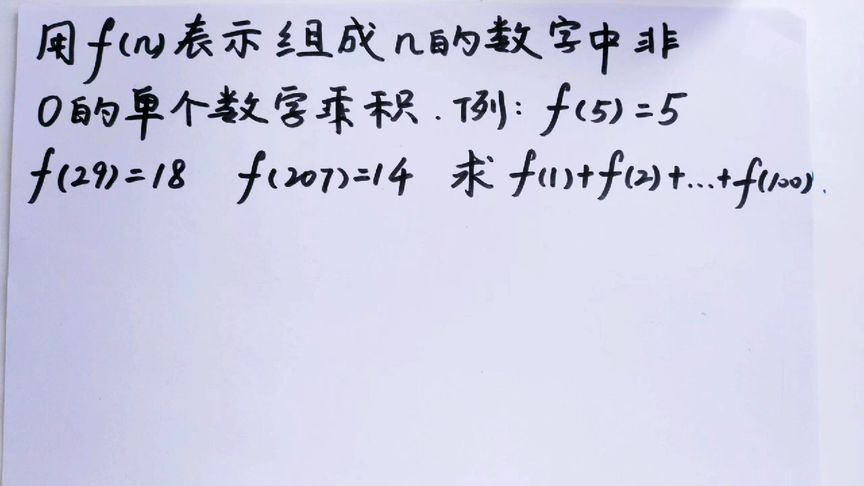 用f(n)表示组成n的数字中非
0的单个数字乘积.下列: f(5)=5
f(29)=18 f(207)=14 求 f(1)+f(2)+...+f(100).